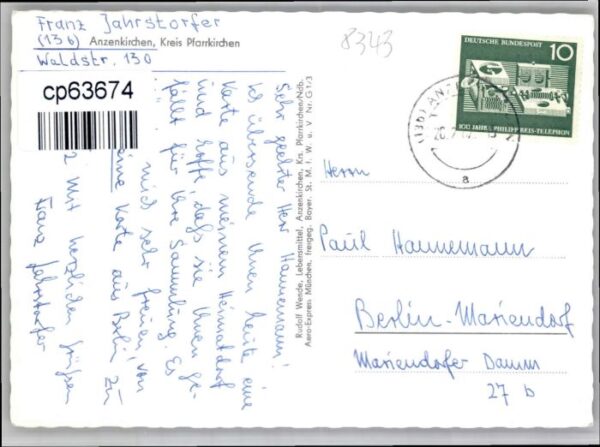 Franz Jahrstorfer
(13b) Anzenkirchen, Kreis Pfarrkirchen
Waldstr. 130
cp63674
8343
DEUTSCHE BUNDESPOST 10
100 JAHRE PHILIPP REIS-TELEPHON
a
Sehr geehrter Herr Hannemann!
Ich übersende Ihnen heute eine
Karte aus meinem Heimatdorf
und hoffe, daß sie Ihnen ge-
fällt für Ihre Sammlung. Es
mich sehr freuen, von
eine Karte aus Berlin zu
Mit herzlichen Grüßen
Franz Jahrstorfer
Rudolf Wende, Lebensmittel, Anzenkirchen, Krs. Pfarrkirchen/Ndb.
Aero-Express München, freigeg. Bayer. St. M. f. W. u. V. Nr. G 1/3
Herrn
Paul Hannemann
Berlin-Mariendorf
Mariendorfer Damm
27 b